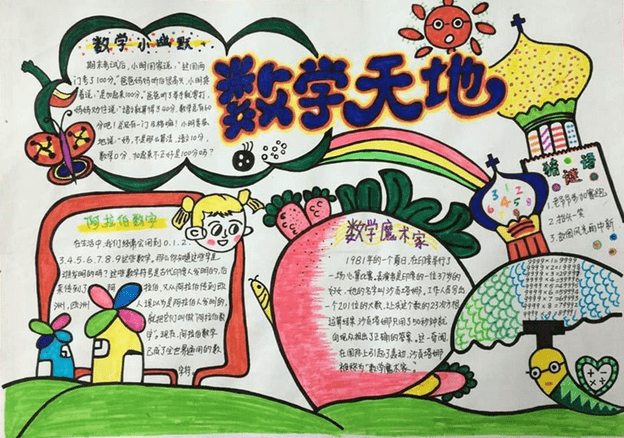 数学天地
数学小幽默
期末考试后,小明回家说:"这回两
门考了100分。"爸爸妈妈听后很高兴,小明接
着说:"是加起来100分。"爸爸听了举手就要打,
分吧!总还有一门不及格嘛!小明委屈
地说:"妈,不是那么算法,语文10分,
数学0分,加起来不正好是100分吗?
阿拉伯数字
在生活中,我们经常会用到0.1.2.
3.4.5.6.7.8.9这些数字。那么你知道这些字是
谁发明的吗?这些数字符号是古代印度人发明的,后
来传到了阿拉伯,又从阿拉伯传到欧
洲,欧洲人误以为是阿拉伯人发明的,
就把它们叫做"阿拉伯数
字"。现在,阿拉伯数字
已成了全世界通用的数
字符号
数学魔术家
1981年的一个夏日,在印度举行了
一场心算比赛。表演者是印度的一位37岁的
妇女,她的名字叫沙贡塔娜。工作人员写出
一个201位的大数,让求这个数的23次方根。
运算结果,沙贡塔娜只用了50秒钟就
向观众报出了正确的答案。这一奇闻,
在国际上引起了轰动,沙贡塔娜
被称为"数学魔术家"。
猜谜语
2.抬头一笑